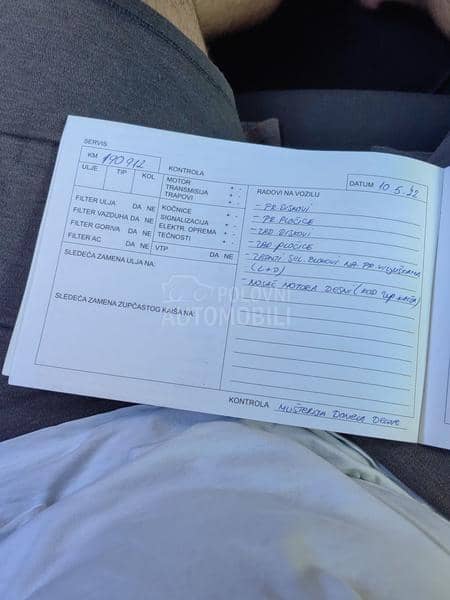 SERVIS
KM 190912
ULJE TIP KOL
KONTROLA
MOTOR + -
TRANSMISIJA + -
TRAPOVI + -
DATUM 10.5.22
FILTER ULJA DA NE
FILTER VAZDUHA DA NE
FILTER GORIVA DA NE
FILTER AC DA NE
KOČNICE + -
SIGNALIZACIJA + -
ELEKTR. OPREMA + -
TEČNOSTI + -
VTP DA NE
SLEDEĆA ZAMENA ULJA NA:
SLEDEĆA ZAMENA ZUPČASTOG KAIŠA NA:
RADOVI NA VOZILU
- PR DISKOVI
- PR PLOČICE
- ZAD DISKOVI
- ZAD PLOČICE
- ZADNJI SIL. BLOKOVI NA PR VILJUŠKAMA
(L+D)
- NOSAČ MOTORA DESNI (KOD ZUP KAIŠA)
KONTROLA MUŠTERIJA DONELA DELOVE
POLOVNI
AUTOMOBILI